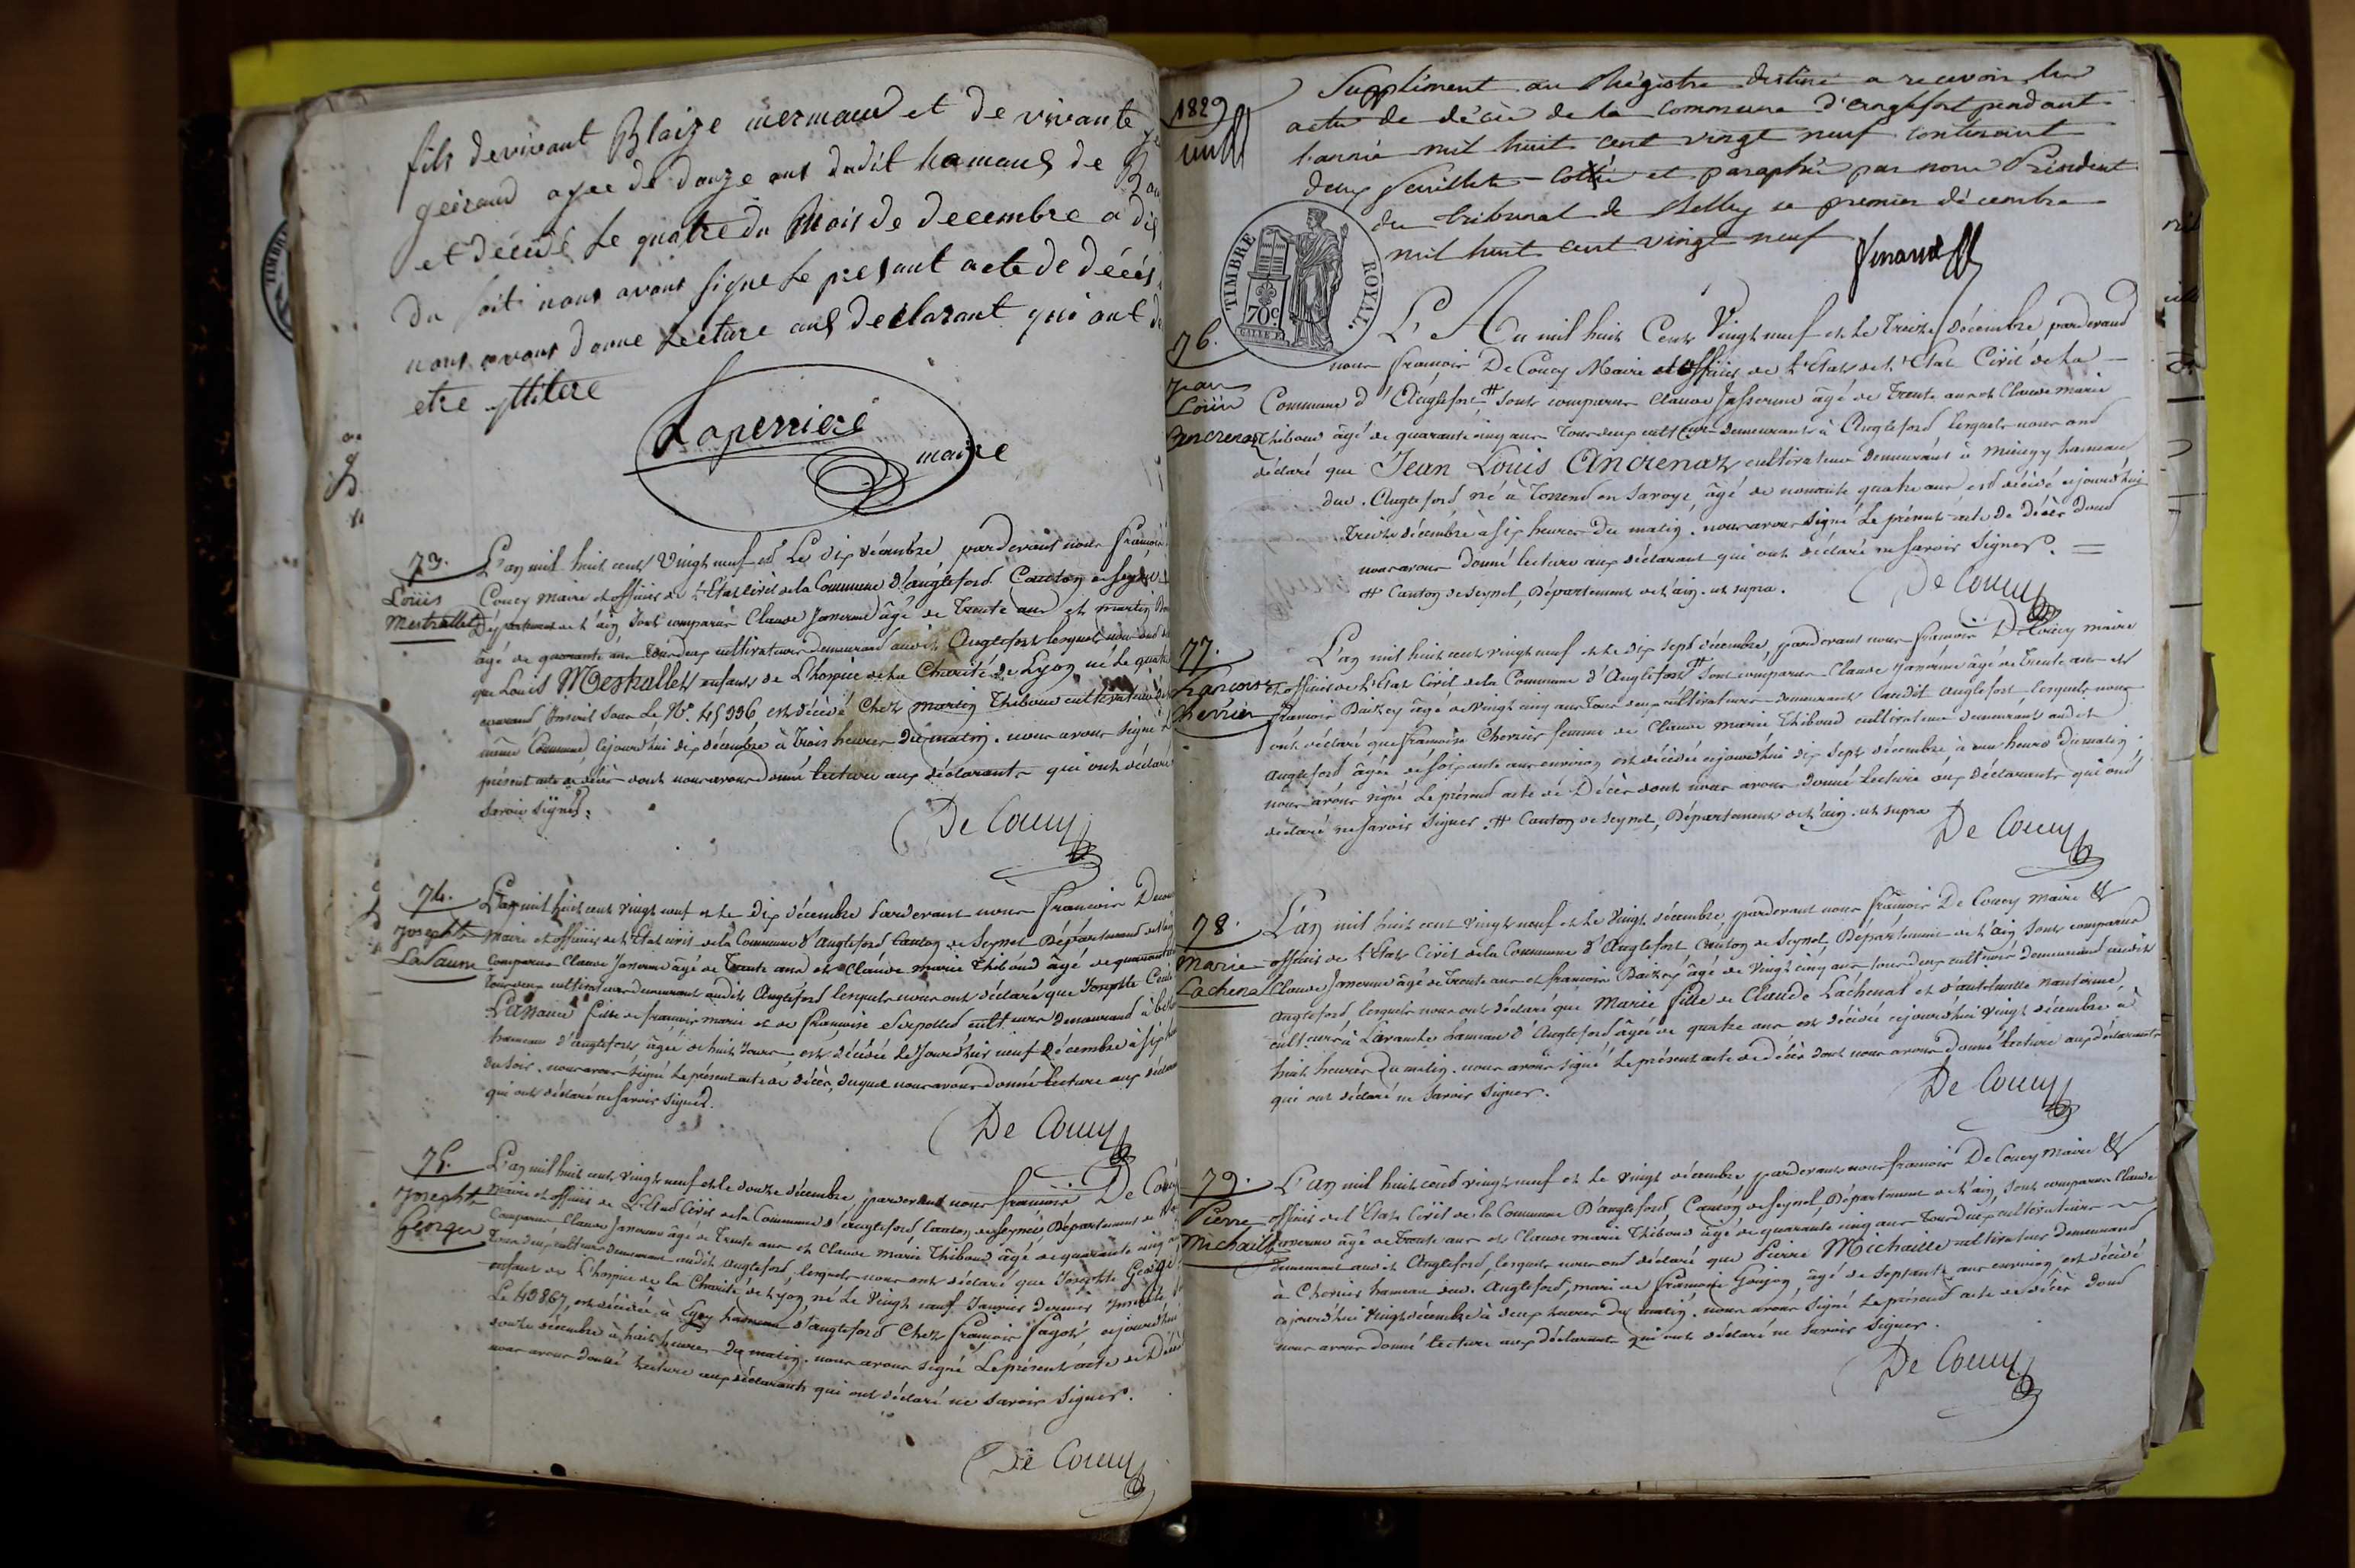 fils de vivant Blaize mermand et de vivante
geirand agee de douze ans dudit hamaud de
et décédé le quatre du Mois de decembre a
du soit nous avons signe le presant acte de décés
nous avons donne Lecture aux declarant qui ont
etre illitere
Laperriere
maire
73.
Louis
Mestrallet
L'an mil huit cent vingt neuf et Le dix décembre pardevant nous francois
Coucy maire et officier de l'Etat civil de la Commune d'angleford Canton de Seyssel
Département de l'ain Sont comparus Claude Janerme âgé de Trente ans et martin
âgé de quarante ans tous deux cultivateurs demeurant audit Anglefort lesquels nous ont
que Louis Mestrallet enfant de L'hospice de la Charité de Lyon né Le quatre
courand Inscrit sous Le N°. 45996, est décédé Chez martin Thiboud cultivateur
même Commune cejourd'hui dix décembre à Trois heures du matin. nous avons signé
présent acte de décès dont nous avons donné Lecture aux déclarants qui ont déclaré
savoir signer.
De Coucy
74.
Josephte
La Saune
L'an mil huit cent vingt neuf et le Dix décembre Pardevant nous francois
maire et officier de l'Etat civil de la Commune d'Angleford Canton de Seyssel Département de l'ain
comparus Claude Janerme âgé de Trente ans et Claude marie Thiboud âgé de quarante
tous deux cultivateurs demeurant audit Angleford lesquels nous ont déclaré que Josephte
fille de francois marie et de francoise Serpollet cult eurs demeurand à
hameau d'anglefort âgée de huit Jours est décédée Le Jourd'hui neuf décembre à six
du soir. nous avons signé Le présent acte de décès, duquel nous avons donné Lecture aux
qui ont déclaré ne savoir signer.
De Coucy
75.
Josephte
George
L'an mil huit cent vingt neuf et le douze décembre pardevant nous francois De Coucy
maire et officier de L'Etat Civil de la Commune d'angleford Canton de Seyssel Département de
Comparus Claude Janerme âgé de Trente ans et Claude marie Thiboud âgé de quarante cinq
Tous deux cultivateurs demeurant audit angleford, lesquels nous ont déclaré que Josephte George
enfant de L'hospice de la Charité de Lyon né Le vingt neuf Janvier dernier Inscrite
Le 43867, est décédée à hameau d'angleford Chez francois fagot cejourd'hui
douze décembre à huit heures du matin. nous avons signé Le présent acte de Décès
nous avons donné Lecture aux déclarants qui ont déclaré ne savoir signer.
De Coucy
1829
un
Suppliment au Régistre destiné a recevoir les
actes de décès de la commune d'anglefort pendant
l'année mil huit cent vingt neuf contenant
deux feuillets cotté et paraphé par nous Président
du tribunal de Belley ce premier décembre
mil huit cent vingt neuf
TIMBRE ROYAL.
70c
76.
Jean
Loüis
Ancrenaz
L'An mil huit Cent Vingt neuf et le Treize décembre pardevand
nous francois De Coucy Maire et officier de l'Etat de l'Etat Civil de la
Commune d'Anglefort # Sont comparus Claude Jasserme âgé de Trente ans et Claude Marie
Thiboud âgé de quarante cinq ans Tous deux cultivateurs demeurants à Angleford lesquels nous ont
déclaré que Jean Louis Ancrenaz cultivateur demeurant à hameau
dud. Angleford né à en Savoye, âgé de nonante quatre ans, est décédé cejourd'hui
Treize décembre à six heures du matin. nous avons signé Le présent acte de décès dont
nous avons donné lecture aux déclarant qui ont déclaré ne savoir signer.
# Canton de Seyssel, Département de l'ain. ut supra.
De Coucy
77.
francoise
Chevrier
L'an mil huit cent vingt neuf et le dix sept décembre, pardevant nous francois De Coucy maire
et officier de l'Etat Civil de la Commune d'Anglefort # Sont comparus Claude Janerme âgé de Trente ans et
francois âgé de vingt cinq ans Tous deux cultivateurs demeurants audit anglefort lesquels nous
ont déclaré que francoise Chevrier femme de Claude marie Thiboud cultivateur demeurant audit
Angleford âgée de soixante ans environ est décédée cejourd'hui dix sept décembre à une heure du matin
nous avons signé Le présent acte de Décès dont nous avons donné Lecture aux déclarants qui ont
déclaré ne savoir signer. # Canton de Seyssel, Département de l'ain. ut supra
De Coucy
78.
Marie
Lachena
L'an mil huit cent vingt neuf et le Vingt décembre, pardevant nous francois De Coucy Maire &
officier de l'Etat Civil de la Commune d'Anglefort Canton de Seyssel, Département de l'ain Sont comparus
Claude Janerme âgé de Trente ans et francois âgé de vingt cinq ans tous deux cultivateurs demeurand audit
Angleford, lesquels nous ont déclaré que Marie fille de Claude Lachenal et d'
cult eurs à Lavanche hameau d'Angleford, âgée de quatre ans est décédée cejourd'hui vingt décembre à
huit heures du matin. nous avons signé Le présent acte de décès dont nous avons donné Lecture aux déclarants
qui ont déclaré ne savoir signer.
De Coucy
79.
Pierre
Michaille
L'an mil huit cent vingt neuf et le vingt décembre pardevant nous francois De Coucy Maire &
officier de l'Etat Civil de la Commune D'angleford, Canton de Seyssel, Département de l'ain, sont comparus Claude
Janerme âgé de Trente ans et Claude marie Thiboud âgé de quarante cinq ans Tous deux cultivateurs
demeurant audit Angleford, lesquels nous ont déclaré que Pierre Michaille cultivateur demeurand
à hameau dud. Angleford, mari de francoise Goujon, âgé de Septante ans environ est décédé
cejourd'hui vingt décembre à deux heures du matin. nous avons signé Le présent acte de décès dont
nous avons donné Lecture aux déclarants qui ont déclaré ne savoir signer.
De Coucy